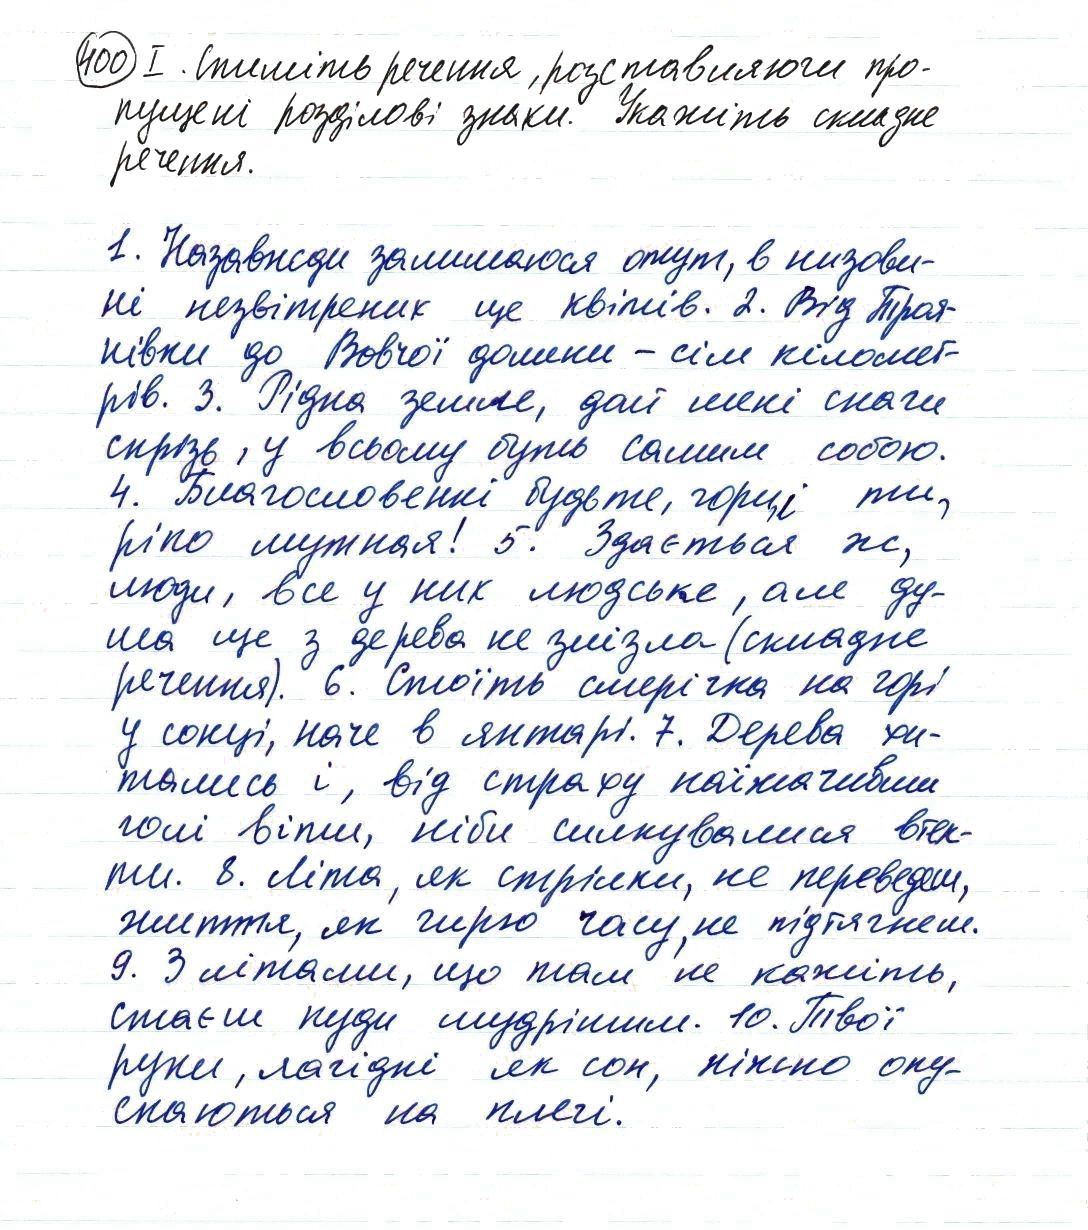 400 I. Спишіть речення, розставляючи про-
пущені розділові знаки. Укажіть складне
речення.
1. Назавжди залишаюся отут, в низови-
ні незвітрених ще квітів. 2. Від Троя-
нівки до Вовчої долини – сім кіломет-
рів. 3. Рідна земле, дай мені снаги
скрізь, у всьому буть самим собою.
4. Благословенні будьте, гори, і ти,
ріко мутная! 5. Здається ж,
люди, все у них людське, але ду-
ша ще з дерева не злізла (складне
речення). 6. Стоїть смерічка на горі
у сонці, наче в янтарі. 7. Дерева хи-
тались і, від страху наїжачивши
голі віти, ніби силкувалися втек-
ти. 8. Літа, як стрілки, не переведеш,
життя, як гирю часу, не підтягнеш.
9. З літами, що там не кажіть,
стаєш куди мудрішим. 10. Твої
руки, лагідні як сон, ніжно опу-
скаються на плечі.